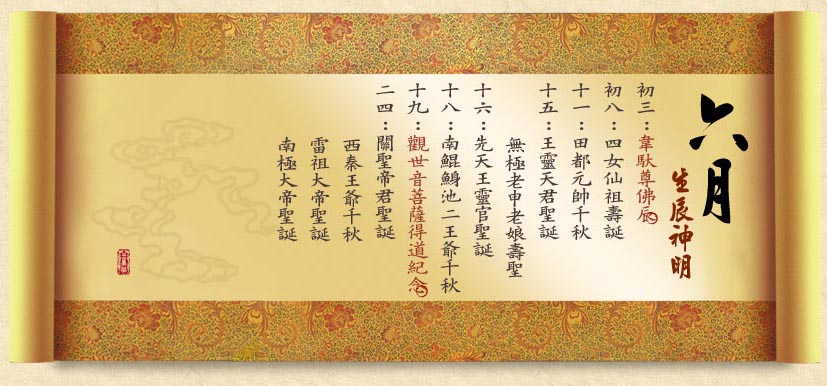 六月
生辰神明
初三：韋馱尊佛辰
初八：四女仙祖壽誕
十一：田都元帥千秋
十五：王靈天君聖誕
無極老申老娘壽聖
十六：先天王靈官聖誕
十八：南鯤鯓池二王爺千秋
十九：觀世音菩薩得道紀念
二四：關聖帝君聖誕
西秦王爺千秋
雷祖大帝聖誕
南極大帝聖誕